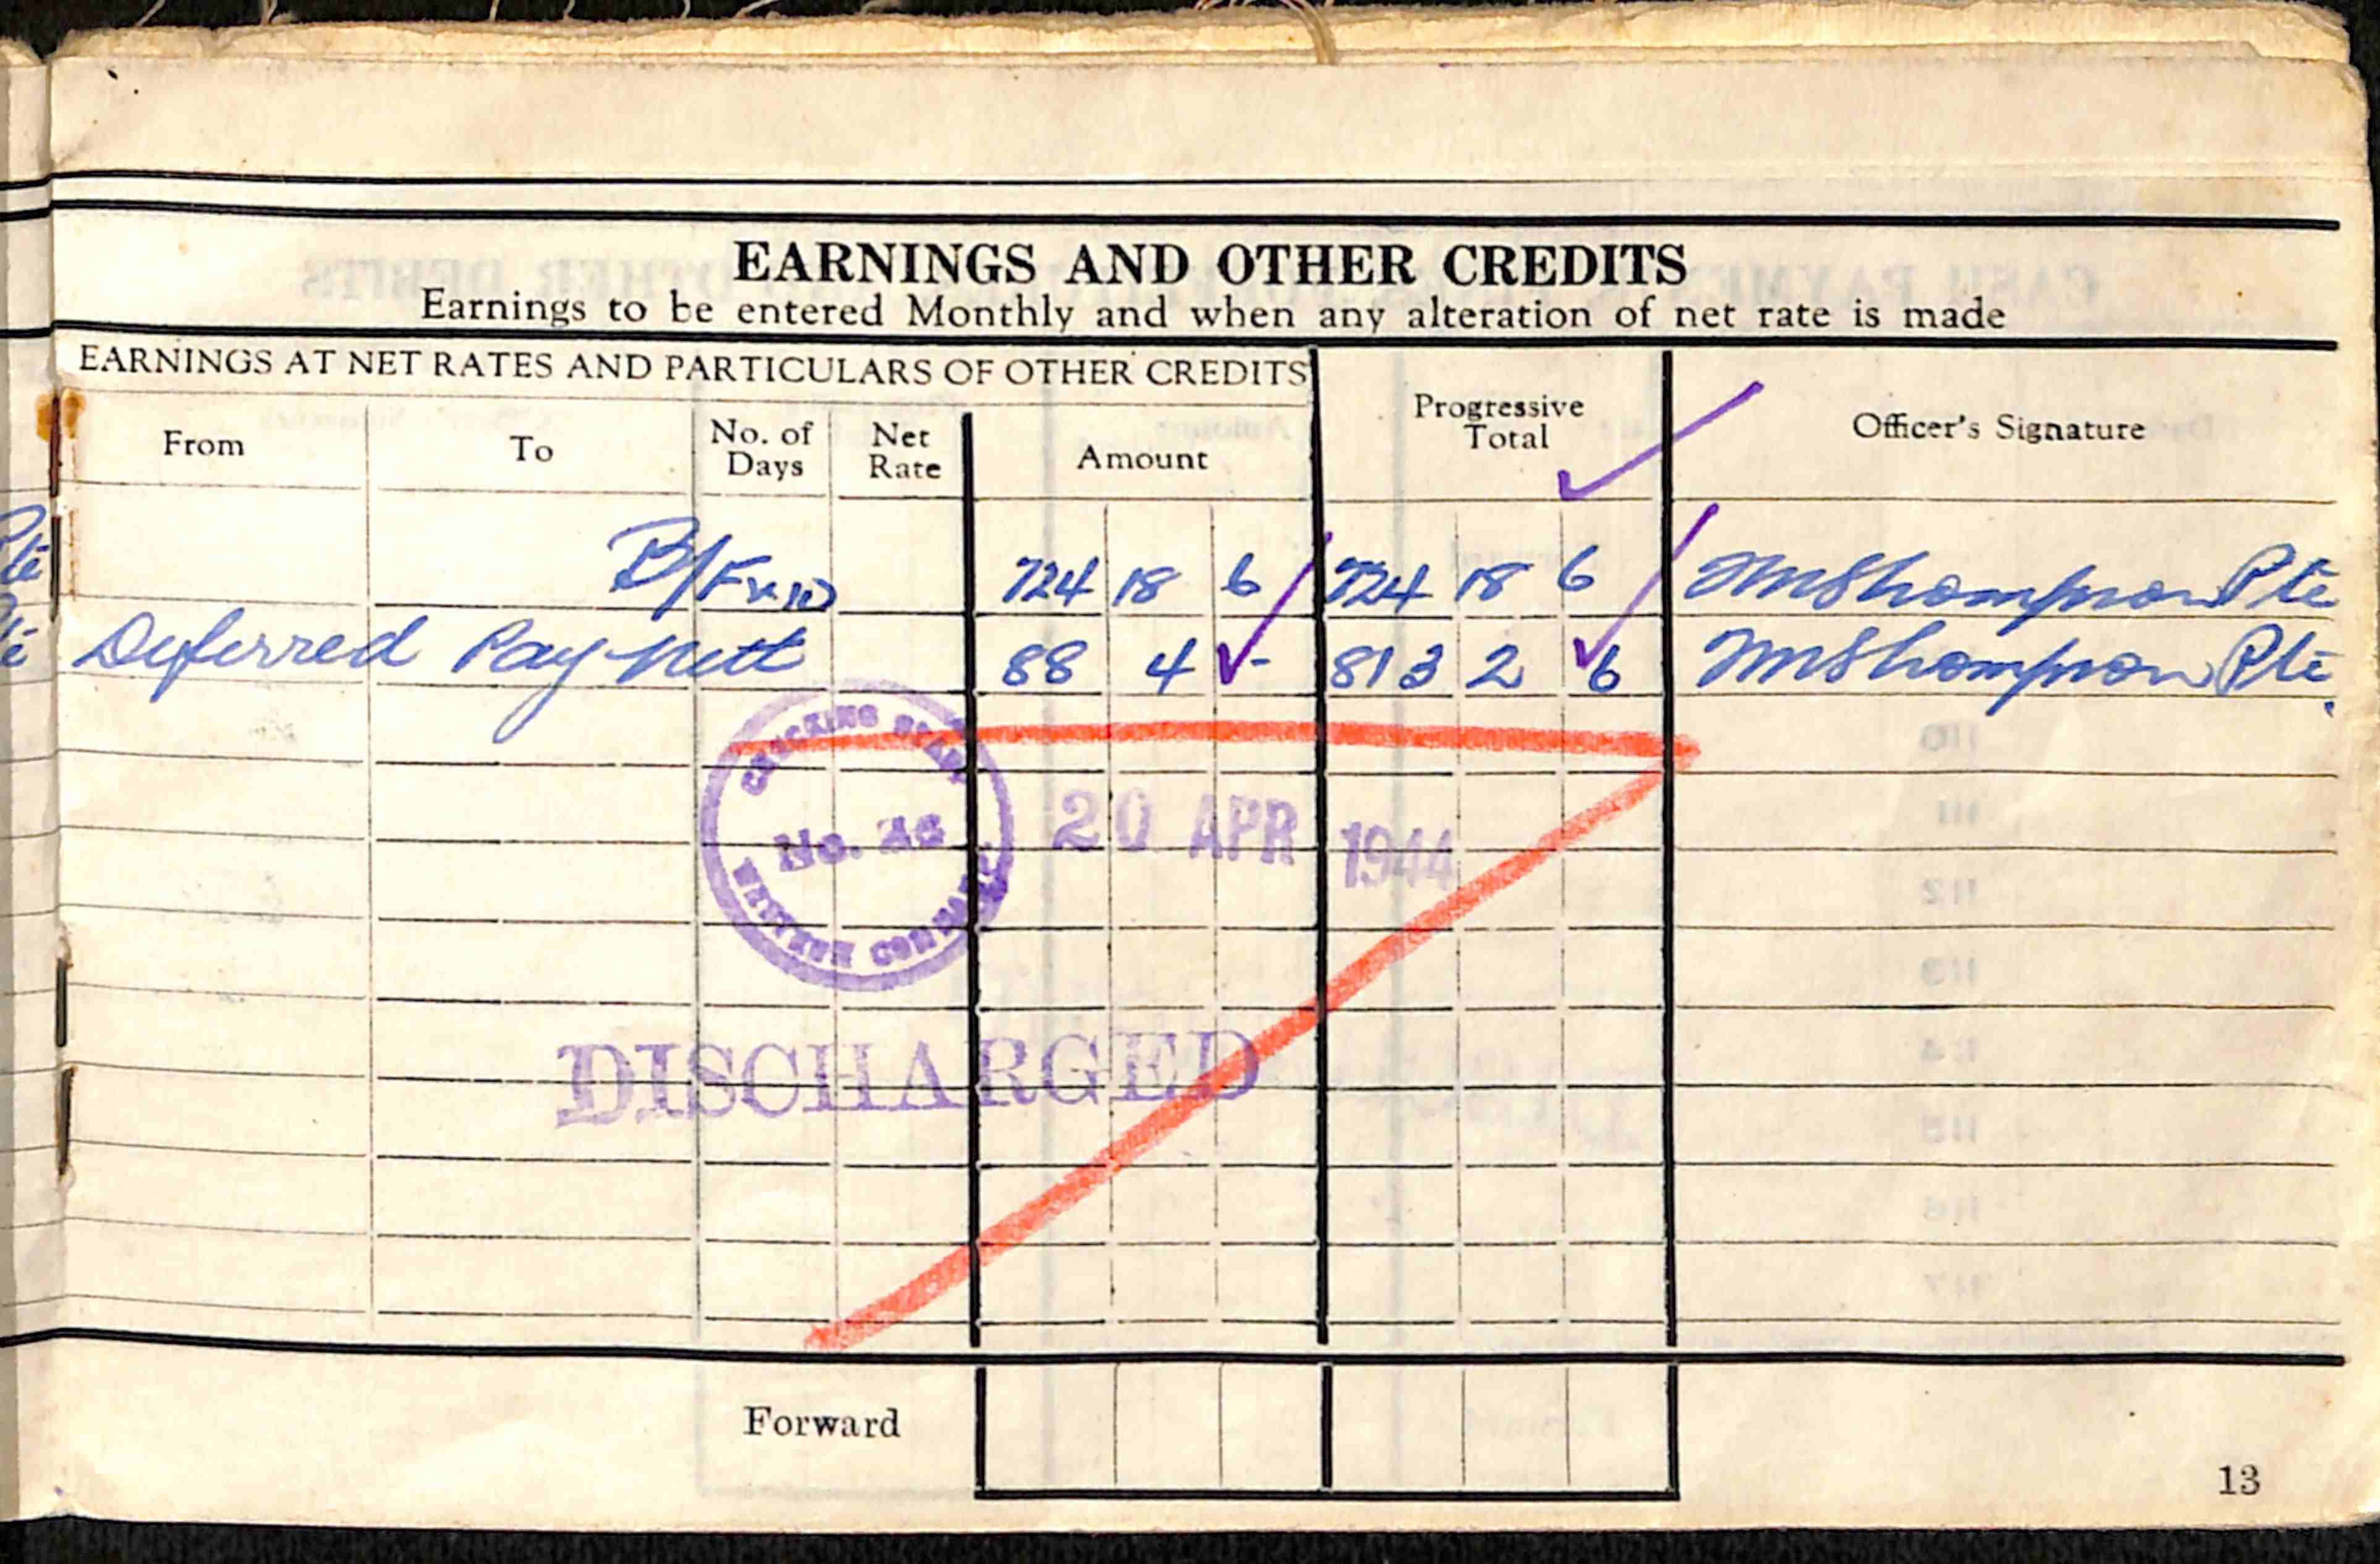 EARNINGS AND OTHER CREDITS
Earnings to be entered Monthly and when any alteration of net rate is made
EARNINGS AT NET RATES AND PARTICULARS OF OTHER CREDITS
From To No. of Days Net Rate Amount Progressive Total Officer's Signature
B/Fwd 724 18 6 724 18 6 Pte
Deferred Pay nett 88 4 - 813 2 6 Pte
CHECKING STAFF
No. 26
WESTERN COMMAND
20 APR 1944
DISCHARGED
Forward
13